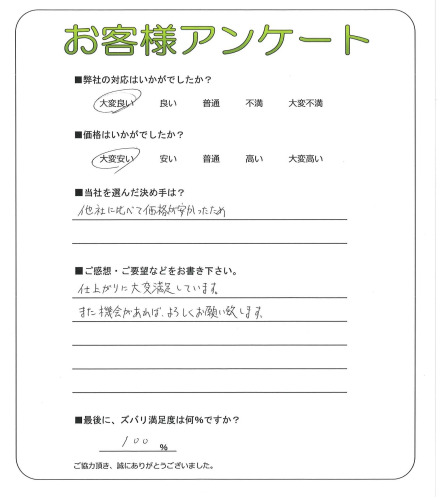 お客様アンケート
■弊社の対応はいかがでしたか？
大変良い 良い 普通 不満 大変不満
■価格はいかがでしたか？
大変安い 安い 普通 高い 大変高い
■当社を選んだ決め手は？
他社に比べて価格が安かったため
■ご感想・ご要望などをお書き下さい。
仕上がりに大変満足しています。
また機会があれば、よろしくお願い致します。
■最後に、ズバリ満足度は何%ですか？
100 %
ご協力頂き、誠にありがとうございました。